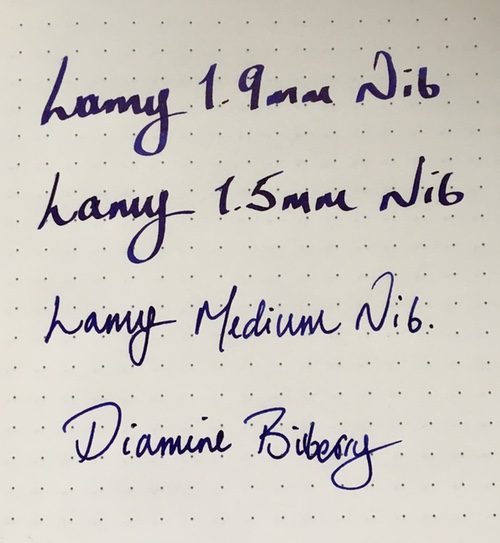 Lamy 1.9mm Nib
Lamy 1.5mm Nib
Lamy Medium Nib.
Diamine Bilberry